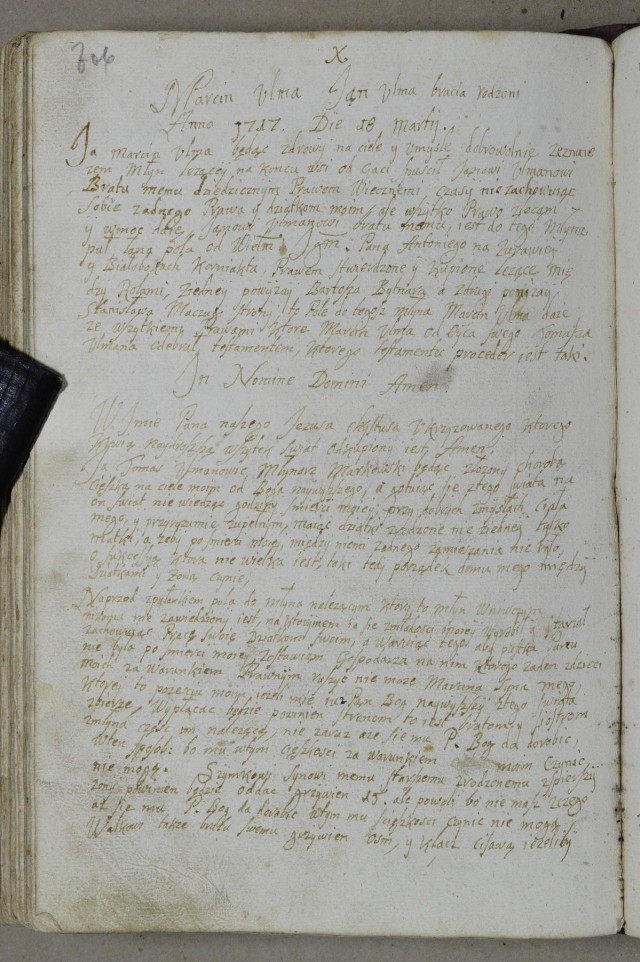 206
X
Marcin Ulma Jan Ulma bracia rodzoni
Anno 1717. Die 18 Martij.
Ja Marcin Ulma będąc zdrowy na ciele y umyśle dobrowolnie zeznaie
zem Młyn lezący na koncu wsi od Gaci spuscił Janowi Ulmanowi
Bratu memu dziedzicznym Prawem Wiecznemi czasy nie zachowuiąc
sobie zadnego Prawa y dziatkom moim, ale wszytko Prawo zlecam
y wmoc daie Janowi Ulmanowi bratu memu, iest do tego Młyna
puł łana pola od Wielm Jym. Pana Antoniego na Zurawicy
y Białobokach Korniakta, Prawem stwierdzone y kupione lezące mię
dzy Rolami, ziedney powyzay Bartosza Bytnara a zdrugi ponizay
Stanisława Maczug strony, to Pole do tegosz młyna Marcin Ulma daie
ze wszytkiemi Prawami ktore Marcin Ulma od Oyca swego Tomasza
Ulmana odebrał testamentem, ktorego testamentu proceder iest taki.
In Nomine Domini Amen.
W Imie Pana naszego Jezusa Chrystusa Ukrzyzowanego, ktorego
Krwią Naydrozszą wszytek swiat odkupiony iest, Amen.
Ja Tomas Ulmanowic Młynarz Markowski będąc złozony chorobą
cięszką na ciele moim od Boga naywyzszego, a gotuiąc się ztego swiata na
on swiat nie wiedząc godziny smierci moiey, przy dobrych zmysłach Ciała
mego, y przyrozumie zupełnym, maiąc dziatki zrodzone nie ziedney tylko
matki, a zeby po smierci moiey, między niemi zadnego zamieszania nie było,
o sukcessyą ktora nie wielka iest, taki tedy porządek domu mego między
Dziatkami y zoną czynię,
Naprzod zpułłankiem pola do młyna nalezącym ktory to młyn
nie zawiedziony iest, na ktorymem ia ze zmłodosci moiey wyrobił y starał
zachowuiąc Pracą swoię Dziatkom swoim, a uwazaiąc tego aby pustka Panu
nie była po smierci moiey, zostawiam Gospodarza na nim ktorego zaden zdzieci
moich za warunkiem Prawnym ruszyc nie moze Marcina Syna mego,
ktorey to pozeyciu moim, iezeli mię tu Pan Bog naywyzszy ztego swiata
zbierze, Wypłacac będzie powinien stronom to iest bratom, y siostrom
zmłyna częsc im nalezącą, nie zaraz aze się mu P. Bog da dorobic,
wten sposob: bo mu wtym cięszkosci za warunkiem moim czynic
nie mogą. Szymkowi synowi memu starszemu zrodzonemu zpierszy
zony powinien będzie oddac grzywien 15. ale powoli bo nie masz zczego
asz się mu P. Bog da dorobic wtym mu cięszkosci czynic nie mogą
Walkowi takze bratu swemu grzywien osm, y klacz cisawą iezeliby